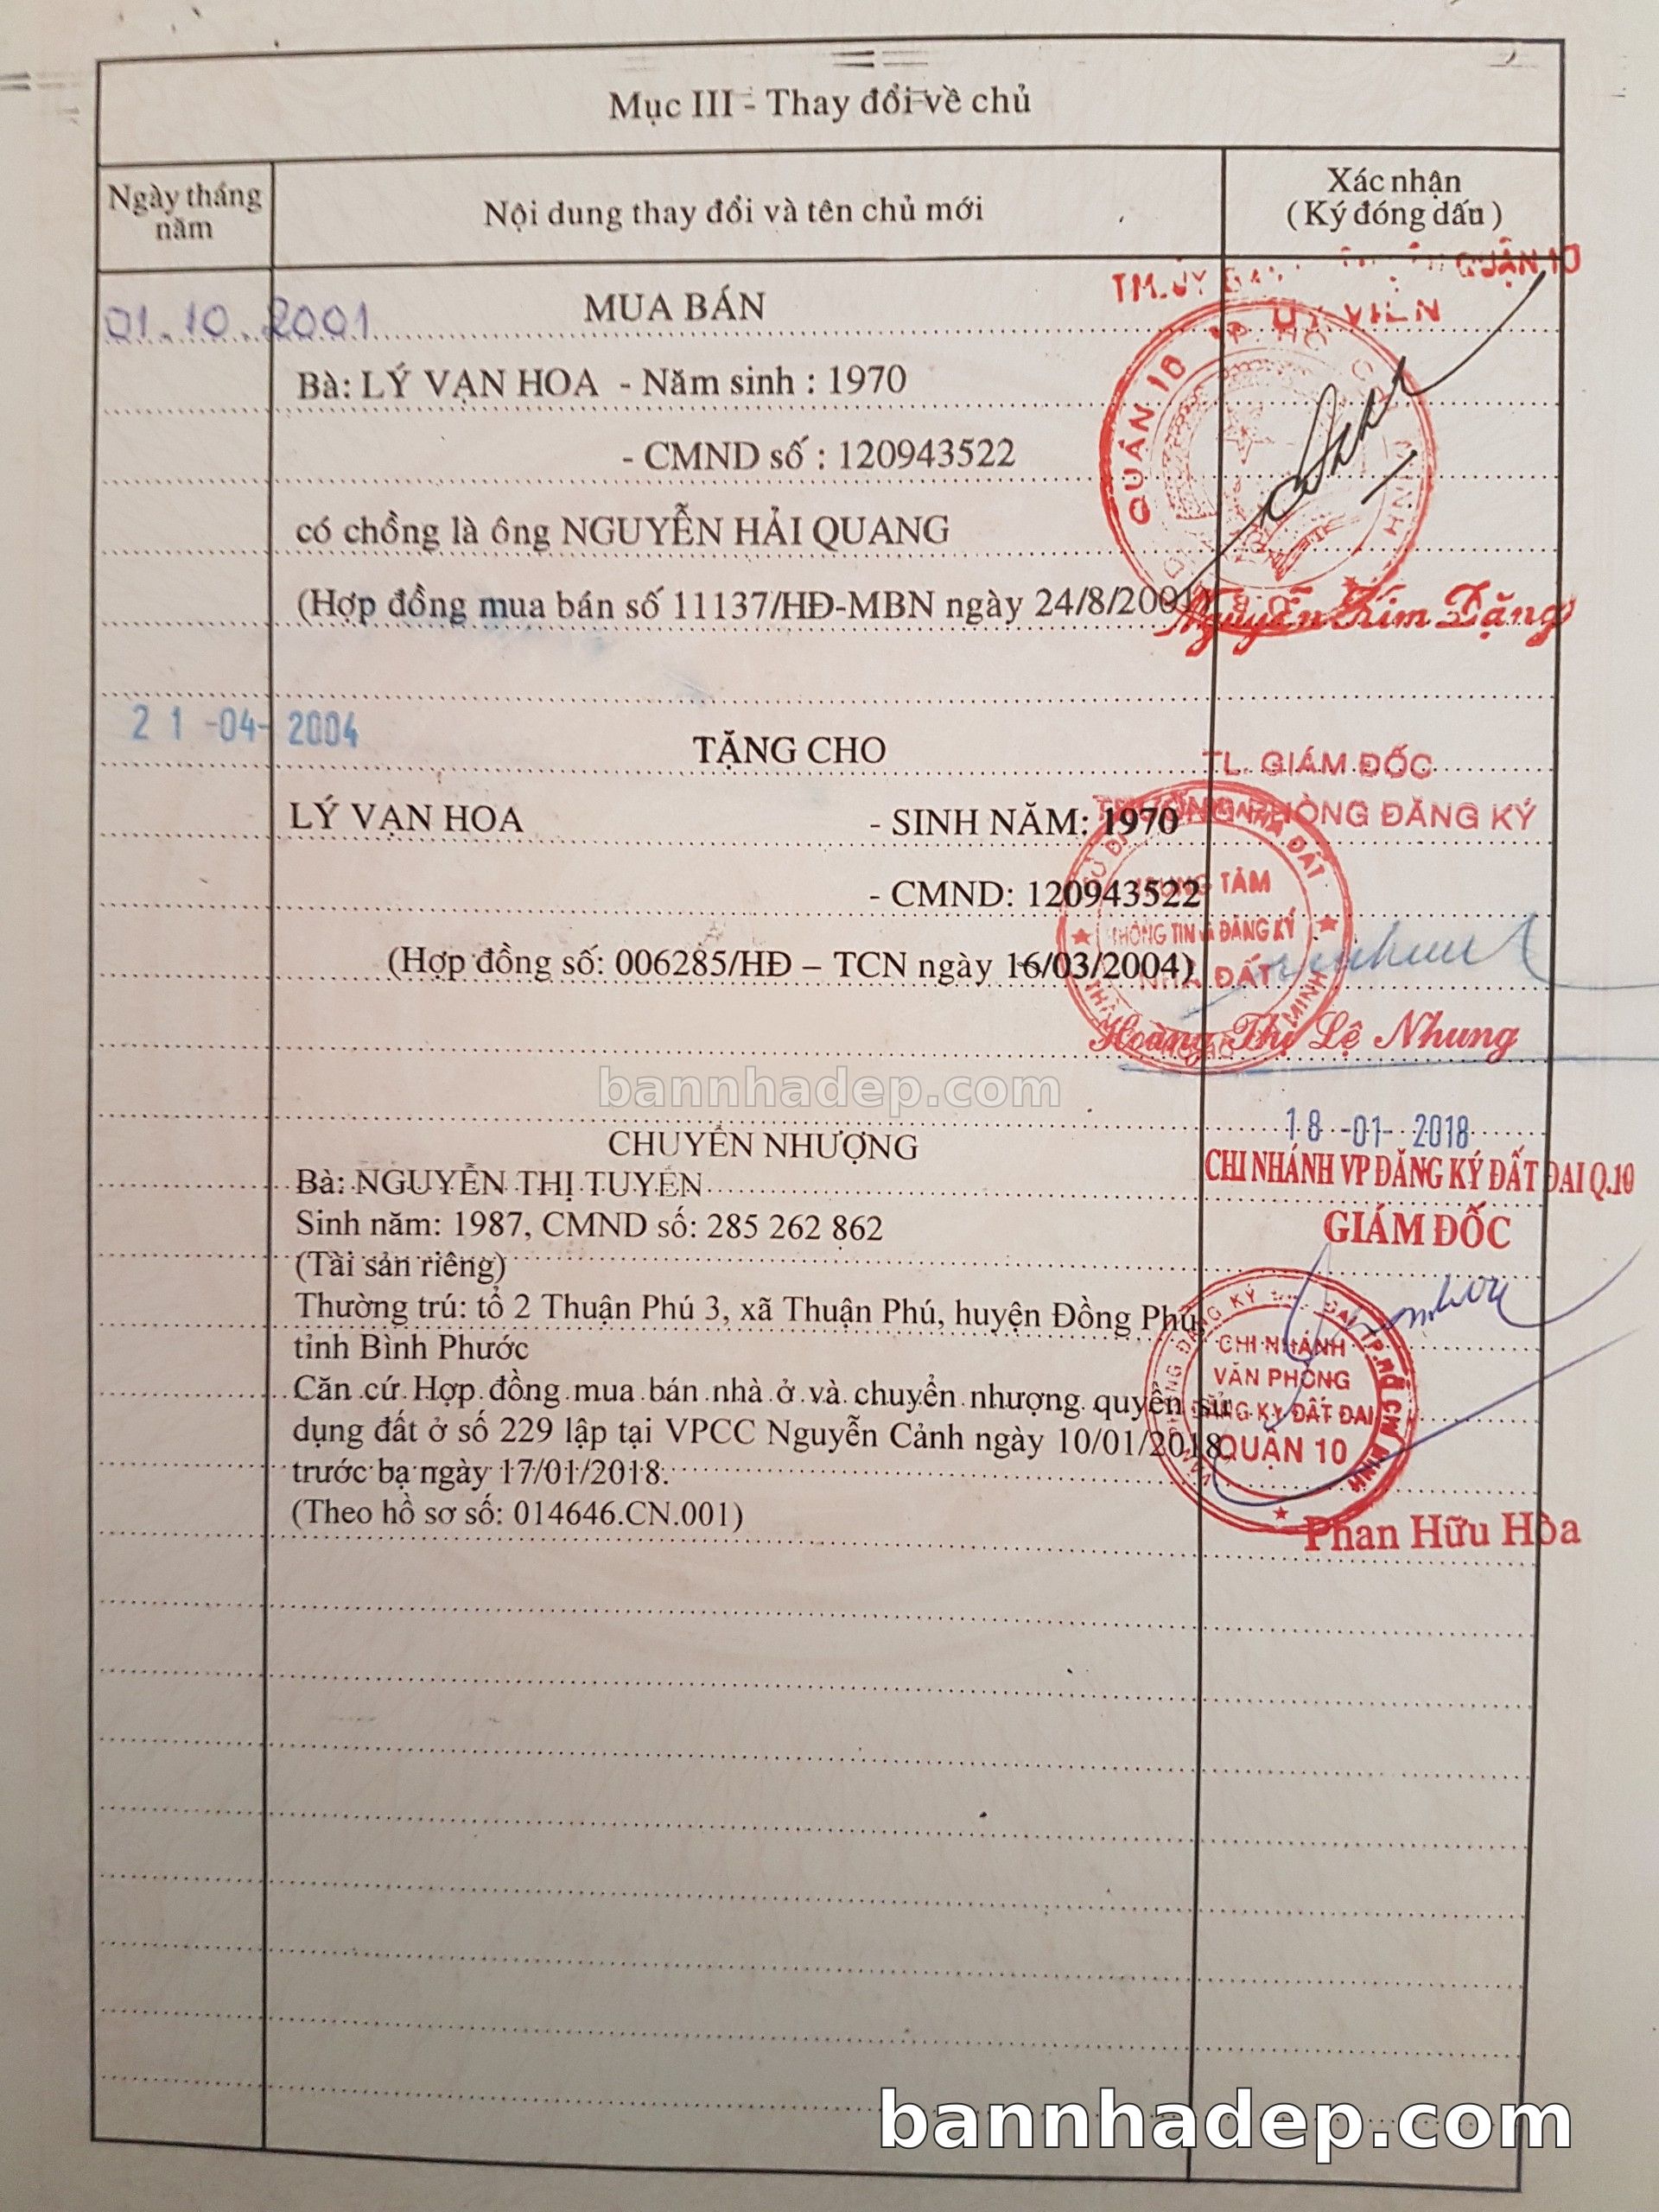 Mục III - Thay đổi về chủ
Ngày tháng năm
Nội dung thay đổi và tên chủ mới
Xác nhận
(Ký đóng dấu)
01.10.2001
MUA BÁN
Bà: LÝ VẠN HOA - Năm sinh : 1970
- CMND số : 120943522
có chồng là ông NGUYỄN HẢI QUANG
(Hợp đồng mua bán số 11137/HĐ-MBN ngày 24/8/2001)
TM. ỦY QUẬN 10
ỦY VIÊN
QUẬN 10 TP. HỒ CHÍ MINH
Nguyễn Kim Đặng
21-04-2004
TẶNG CHO
LÝ VẠN HOA - SINH NĂM: 1970
- CMND: 120943522
(Hợp đồng số: 006285/HĐ – TCN ngày 16/03/2004)
TL. GIÁM ĐỐC
TRƯỞNG PHÒNG ĐĂNG KÝ
TRUNG TÂM
THÔNG TIN VÀ ĐĂNG KÝ
NHÀ ĐẤT
Hoàng Thị Lệ Nhung
bannhadep.com
CHUYỂN NHƯỢNG
Bà: NGUYỄN THỊ TUYÊN
Sinh năm: 1987, CMND số: 285 262 862
(Tài sản riêng)
Thường trú: tổ 2 Thuận Phú 3, xã Thuận Phú, huyện Đồng Phú,
tỉnh Bình Phước
Căn cứ Hợp đồng mua bán nhà ở và chuyển nhượng quyền sử
dụng đất ở số 229 lập tại VPCC Nguyễn Cảnh ngày 10/01/2018
trước bạ ngày 17/01/2018.
(Theo hồ sơ số: 014646.CN.001)
18-01-2018
CHI NHÁNH VP ĐĂNG KÝ ĐẤT ĐAI Q.10
GIÁM ĐỐC
CHI NHÁNH
VĂN PHÒNG
ĐĂNG KÝ ĐẤT ĐAI
QUẬN 10
Phan Hữu Hòa
bannhadep.com